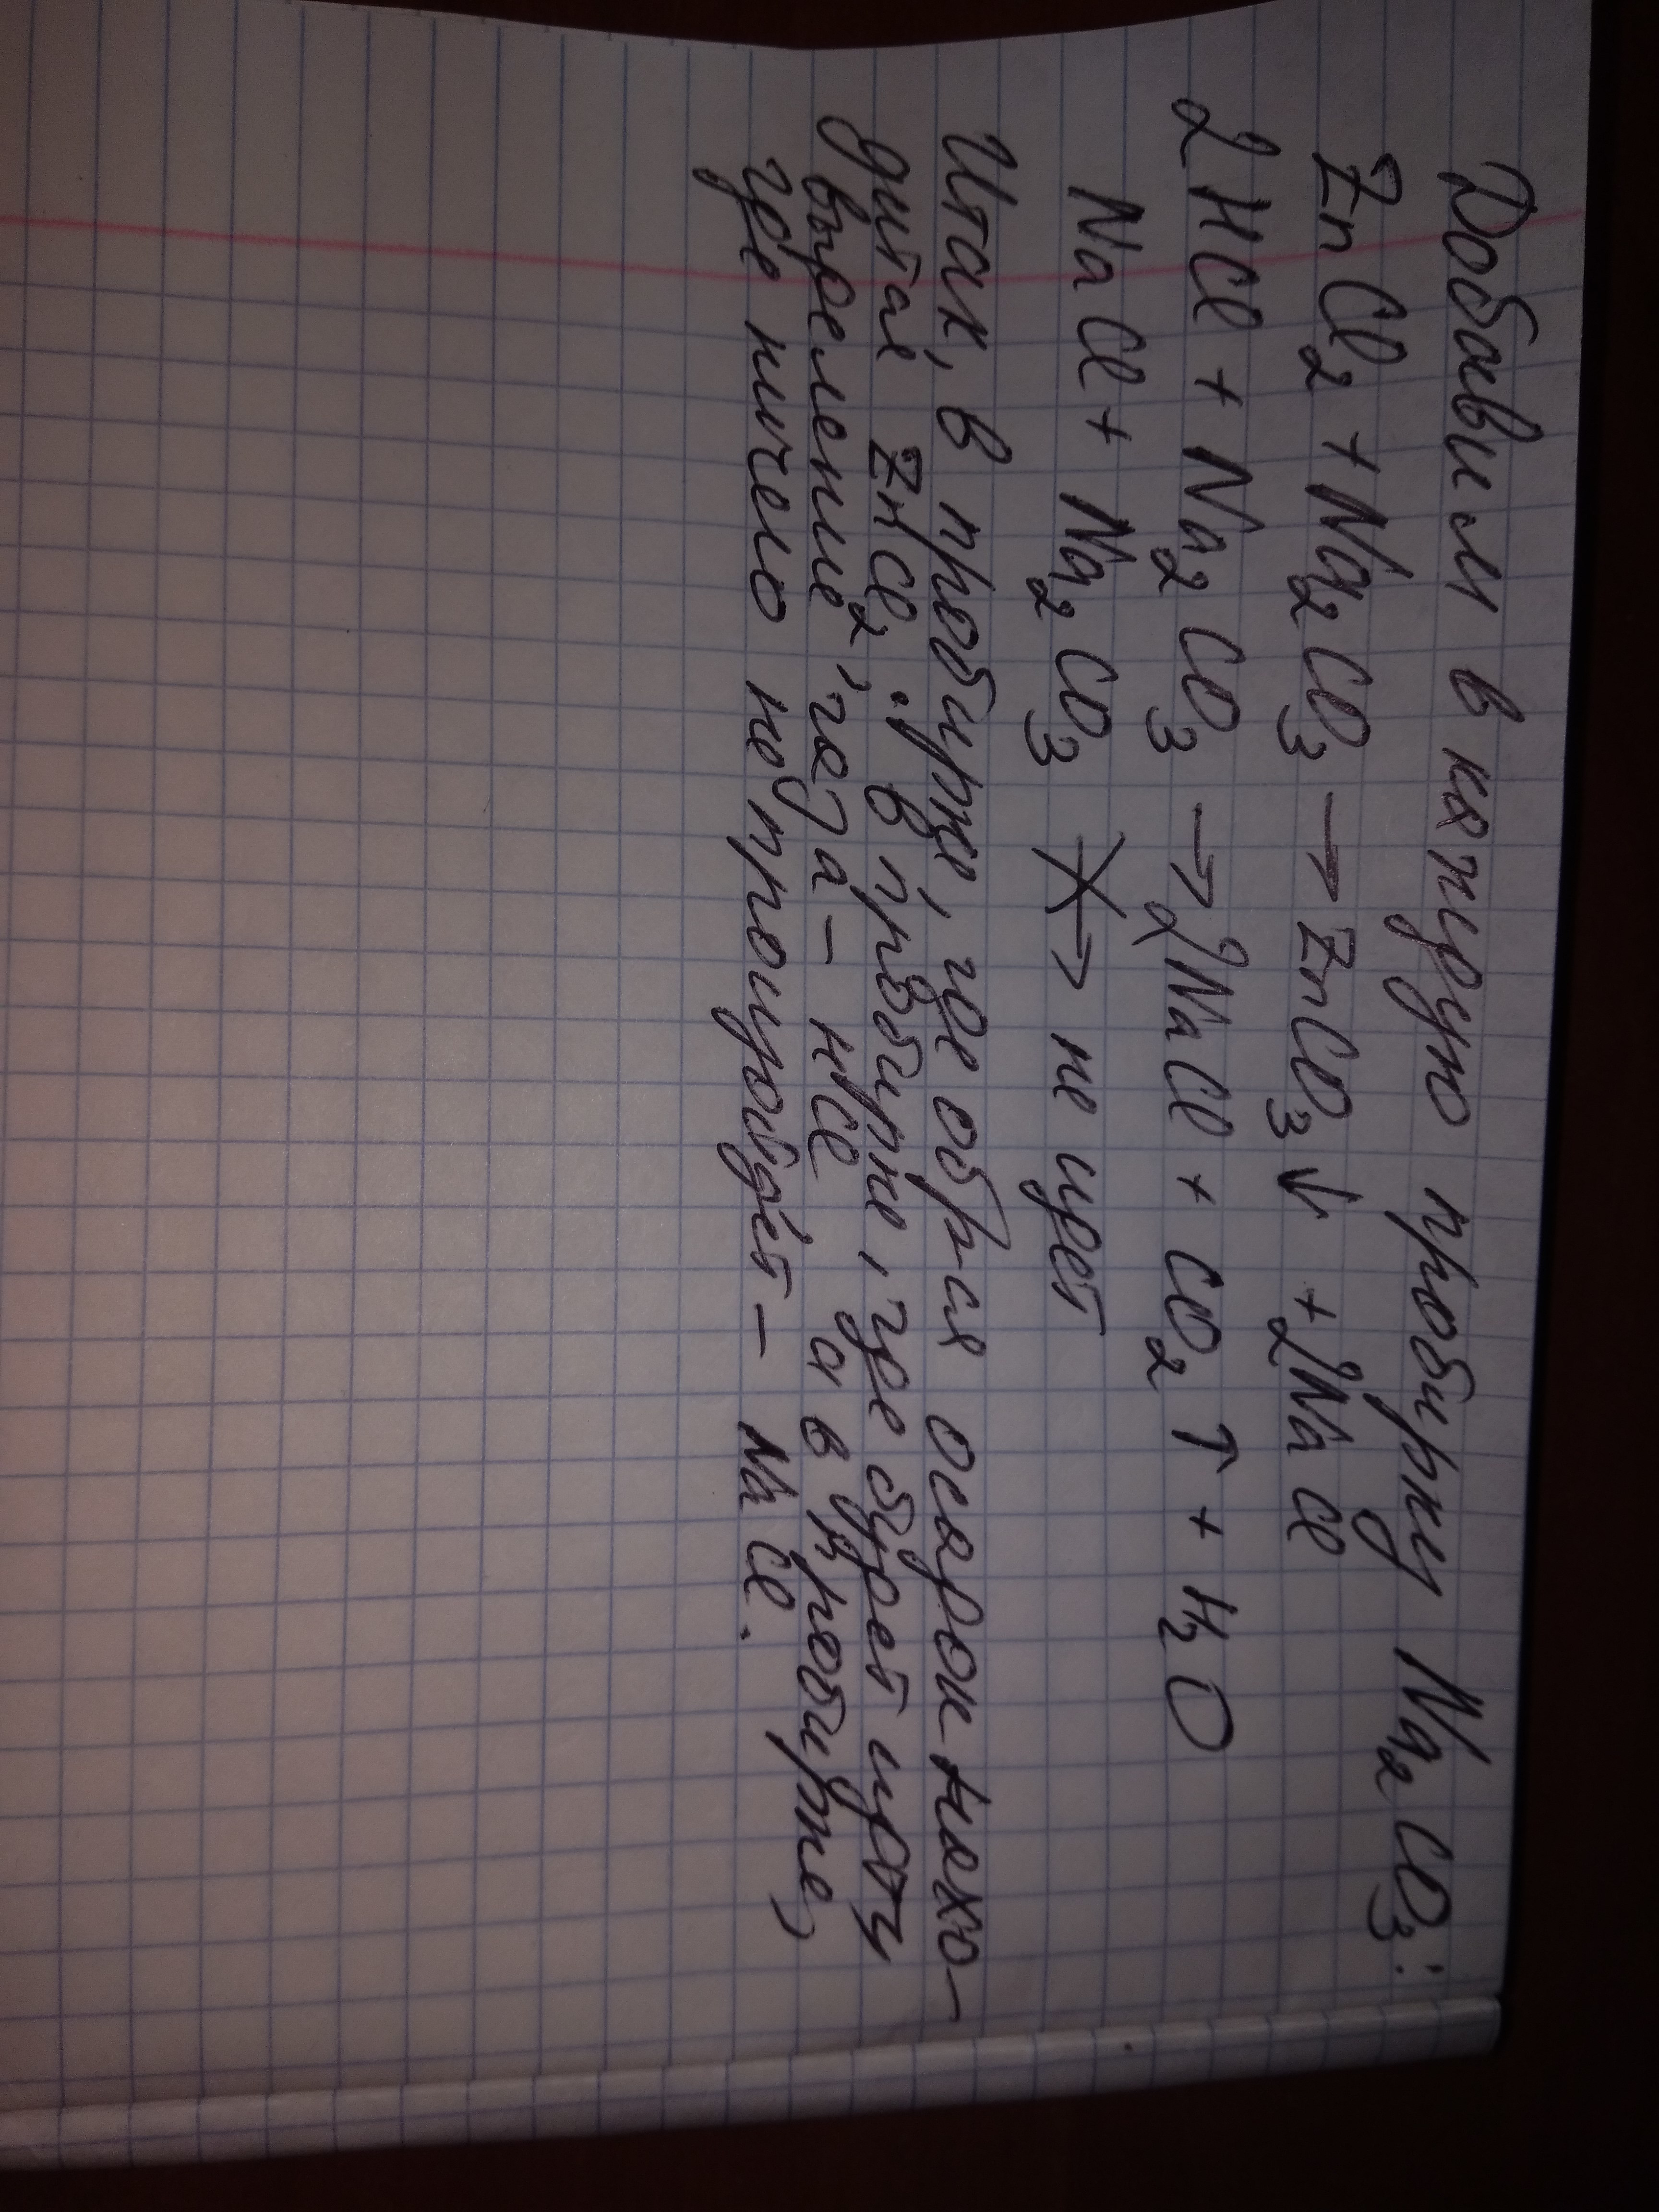 Добавим в каждую пробирку Na₂CO₃:
ZnCl₂ + Na₂CO₃ → ZnCO₃↓ + 2NaCl
2HCl + Na₂CO₃ → 2NaCl + CO₂↑ + H₂O
NaCl + Na₂CO₃ ↛ не идет
Итак, в пробирке, где обр-ся осадок нахо-
дится ZnCl₂; в пробирке, где будет идти
выделение газа - HCl а в пробирке,
где ничего не произойдёт - NaCl.